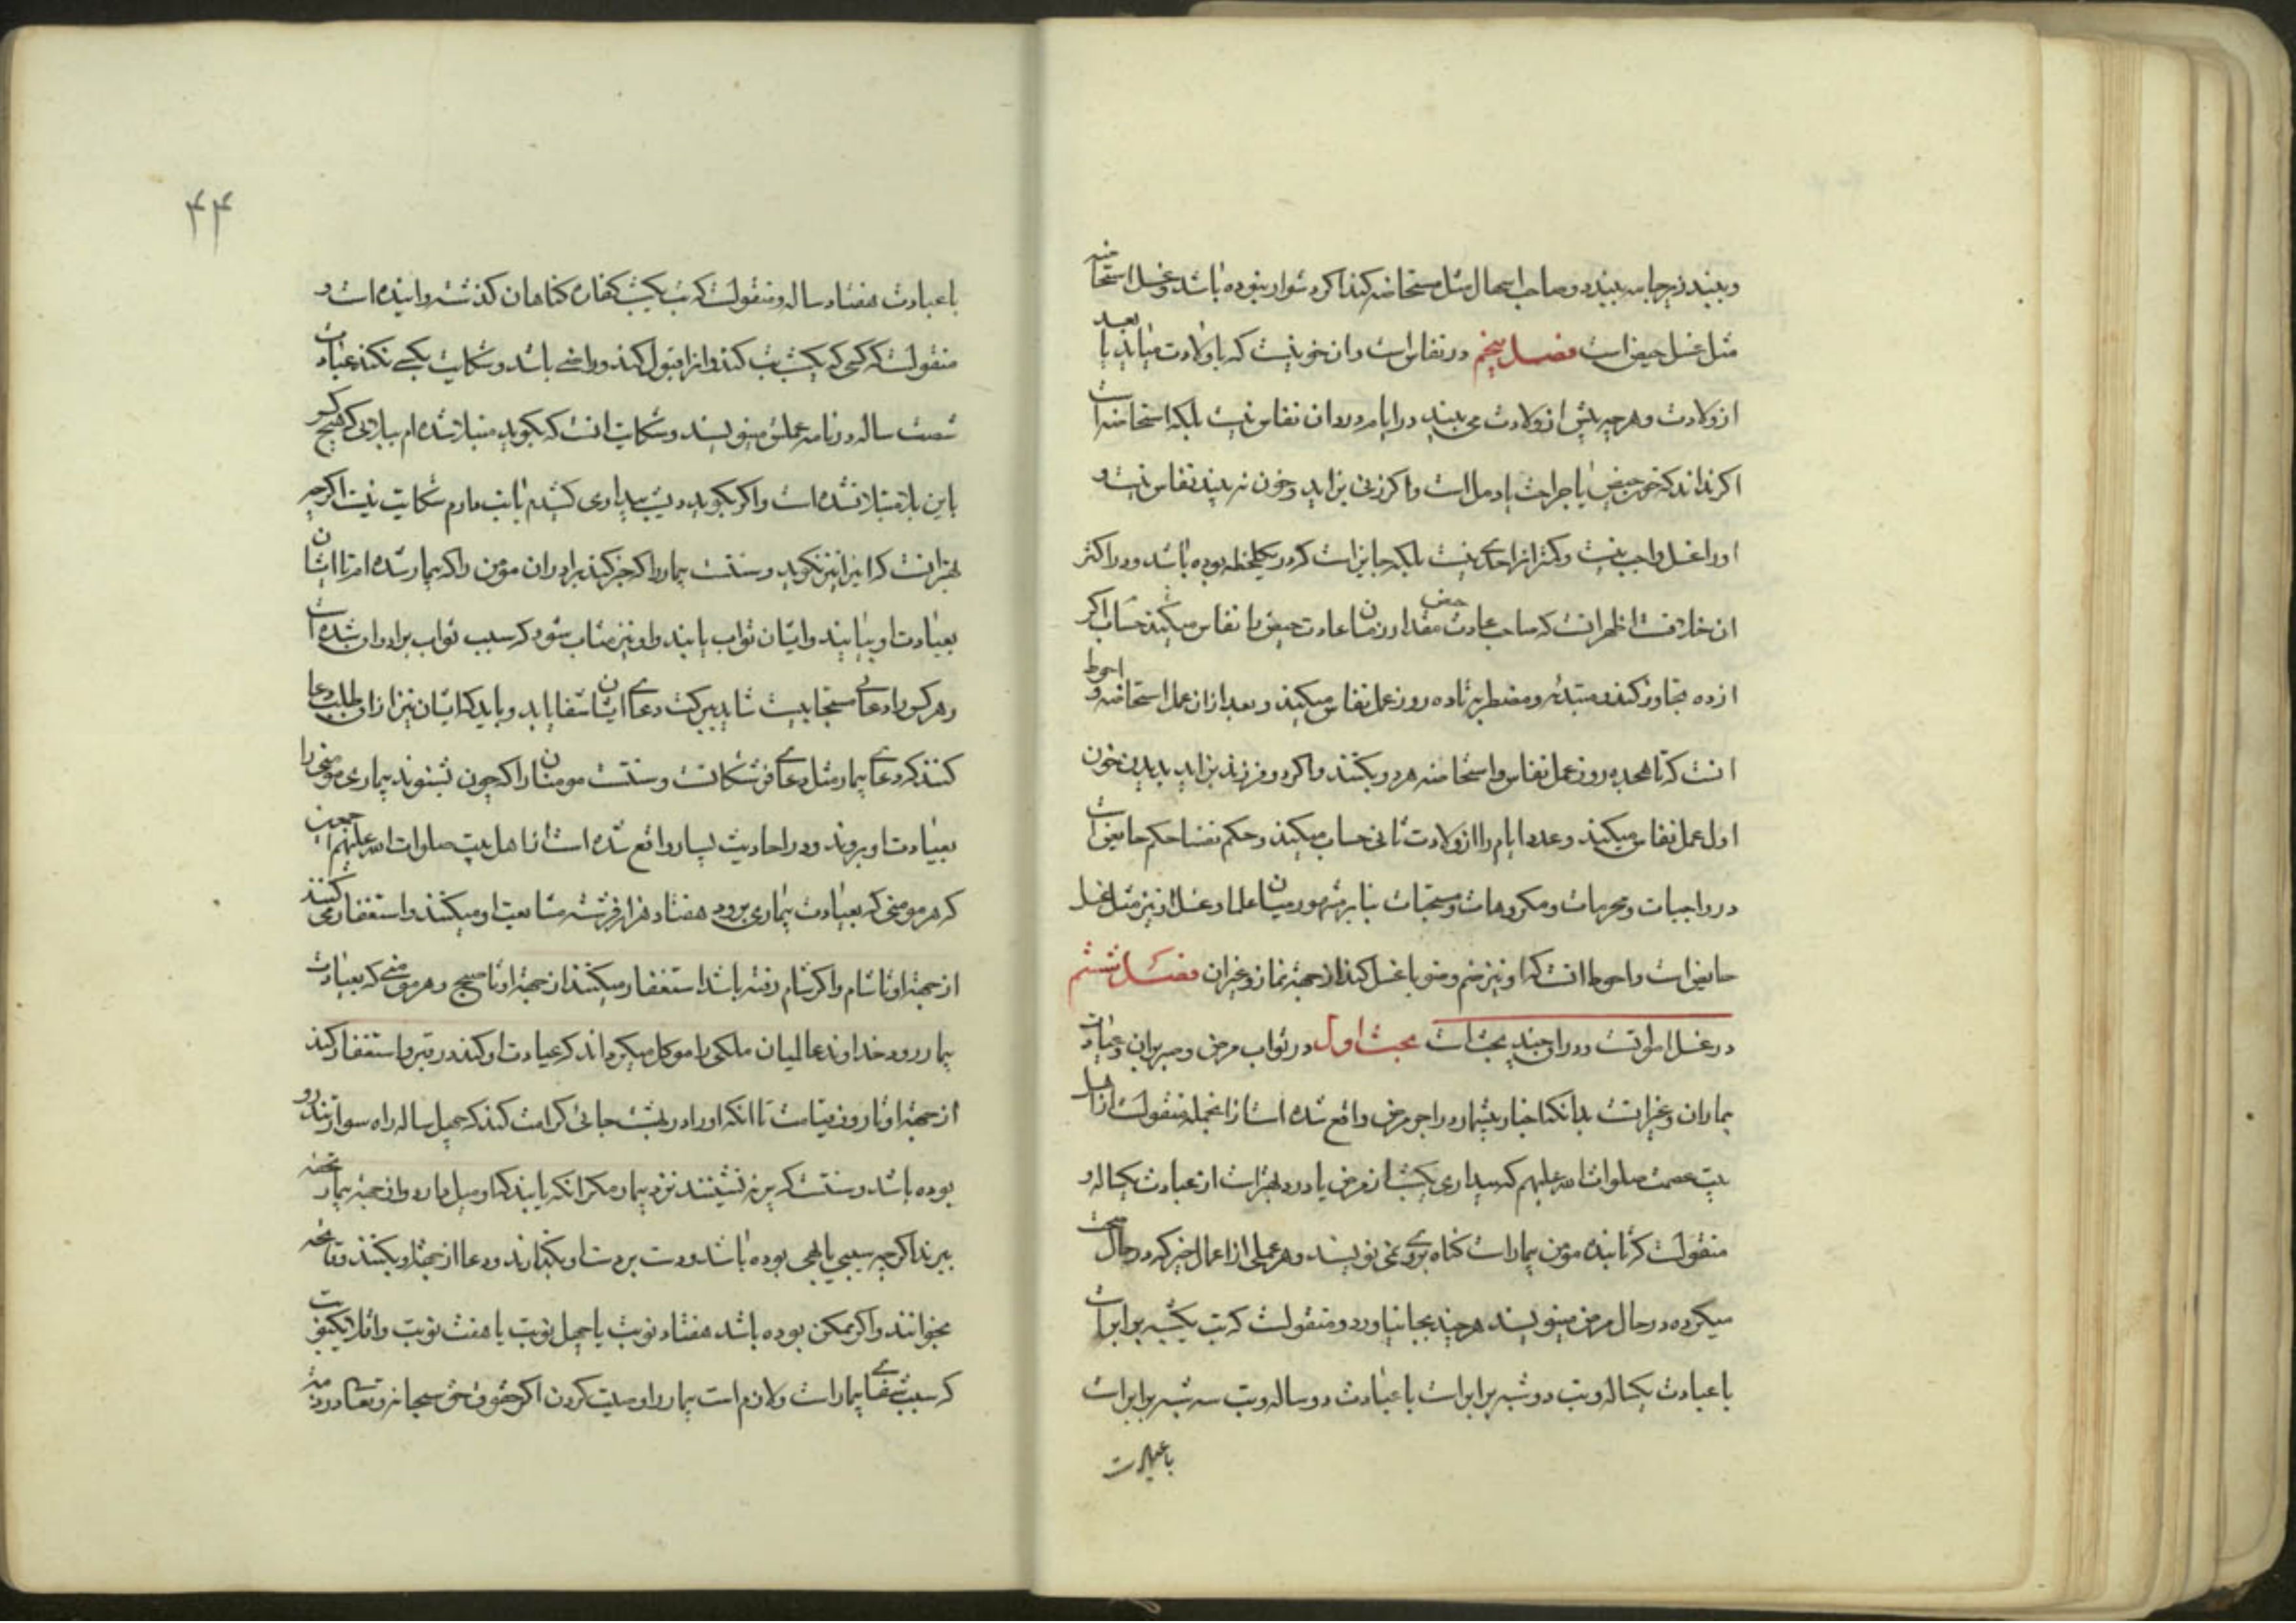 و ببندد زیرجامه ببندد و صاحب اسهال مثل مستحاضه کند اگر دشوار نبوده باشد و غسل استحاضه
مثل غسل حیض است فصل پنجم در نفاس است و ان خونیست که با ولادت میاید یا بعد
از ولادت و هر چه پیش از ولادت می بیند در ایام درد ان نفاس نیست بلکه استحاضه است
اگر نداند که خون حیض یا جراحت یا دمل است و اگر زنی بزاید و خون نه بیند نفاس نیست و
او را غسل واجب نیست و کمتر انرا حدی نیست بلکه جایز است که در یکلحظه بوده باشد و در اکثر
ان خلافست اظهر انست که صاحب عادت حیض مقدار زمان عادت حیض را نفاس میکند حساب اگر
از ده تجاوز کند و مبتدئه و مضطربه تا ده روز عمل نفاس میکند و بعد از ان عمل استحاضه و احوط
انست که تا هجده روز عمل نفاس و استحاضه هر دو بکنند و اگر دو فرزند بزاید بدیدن خون
اول عمل نفاس میکند و عدد ایام را از ولادت ثانی حساب میکند و حکم نفسا حکم حایض است
در واجبات و محرمات و مکروهات و مستحبات بنا بر مشهور میان علما و غسل او نیز مثل غسل
حایض است و احوط انست که او نیز ضم وضو با غسل کند از جهة نماز و غیر ان فصل ششم
در غسل امواتست و در او چند بحث است بحث اول در ثواب مرض و صبر بر ان و عیادت
بیماران و غیر انست بدانکه اخبار بیشمار در اجر مرض واقع شده است از انجمله منقولست از اهل
بیت عصمت صلوات الله علیهم که بیداری یکشب از مرض یا درد بهتر است از عبادت یکساله و
منقولست که تا بنده مؤمن بیمار است گناه بروی نمی نویسند و هر عملی از اعمال خیر که در حال صحت
میکرده در حال مرض مینویسند هر چند بجا نیاورد و منقولست که تب یکشبه برابر است
با عبادت یکساله و تب دو شبه برابر است با عبادت دو ساله و تب سه شبه برابر است
با عبادت
۴۴
با عبادت هفتاد ساله و منقولست که تب یکشب کفاره کناهان کذشته و اینده است و
منقولست که کسی که یکشب تب کند و انرا قبول کند و راضی باشد و شکایت بکسی نکند عبادت
شصت ساله در نامه عملش مینویسند و شکایت انست که بگوید مبتلا شده ام ببلائی که هیچ کس
باین بلا مبتلا نشده است و اگر بگوید دیشب بیداری کشیدم یا تب دارم شکایت نیست اگرچه
بهتر انست که این را نیز نگوید و سنتست بیمار را که خبر کند برادران مؤمن را که بیمار شده ام تا ایشان
بعیادت او بیایند و ایشان ثواب یابند و او نیز مثاب شود که سبب ثواب برادران شده است
و هر کس را دعای مستجابیست شاید ببرکت دعای ایشان شفا یابد و باید که ایشان نیز از او طلب دعا
کنند که دعای بیمار مثل دعای فرشتکانست و سنتست مومنان را که چون بشنوند بیماری مومنی را
بعیادت او بروند و در احادیث بسیار واقع شده است از اهل بیت صلوات الله علیهم اجمعین
که هر مومنی که بعیادت بیماری برود هفتاد هزار فرشته مشایعت او میکنند و استغفار می کنند
از جهة او تا شام و اگر شام رفته باشد استغفار میکنند از جهة او تا صبح و هر مومنی که بعیادت
بیمار رود خداوند عالمیان ملکی را موکل میکرداند که عیادت او کند در قبر و استغفار کند
از جهة او تا روز قیامت تا انکه او را در بهشت جائی کرامت کند که چهل ساله راه سوار تندرو
بوده باشد و سنتست که پر ننشینند نزد بیمار مگر انکه یابند که او میل دارد و از جهة بیمار تحفه
ببرند اگر چه سیبی یا بهی بوده باشد و دست بر دست او بگذارند و دعا از جهة او بکنند و فاتحه
بخوانند و اگر ممکن بوده باشد هفتاد نوبت یا چهل نوبت یا هفت نوبت و اقلا یک نوبت
که سبب شفای بیمار است و لازم است بیمار را وصیت کردن اگر حقوق حق سبحانه و تعالی در ذمه